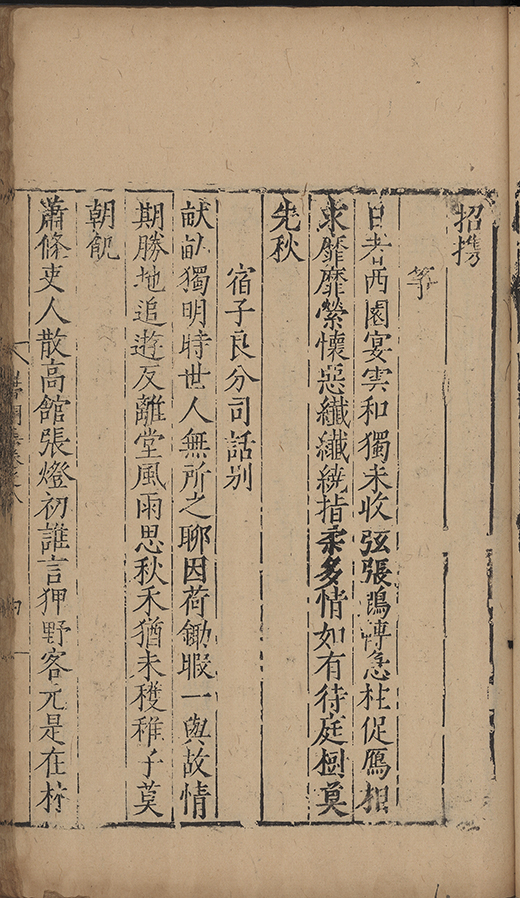 招携
筝
日者西園宴雲和獨未收弦張鵾轉急柱促鴈相
求靡靡縈懷惡纖纖繞指柔多情如有待庭樹莫
先秋
宿子良分司話别
畎畝獨明時世人無所之聊因荷鋤暇一與故情
期勝地追遊反離堂風雨思秋禾猶未穫稚子莫
朝飢
蕭條吏人散高館張燈初誰言狎野客元是在村